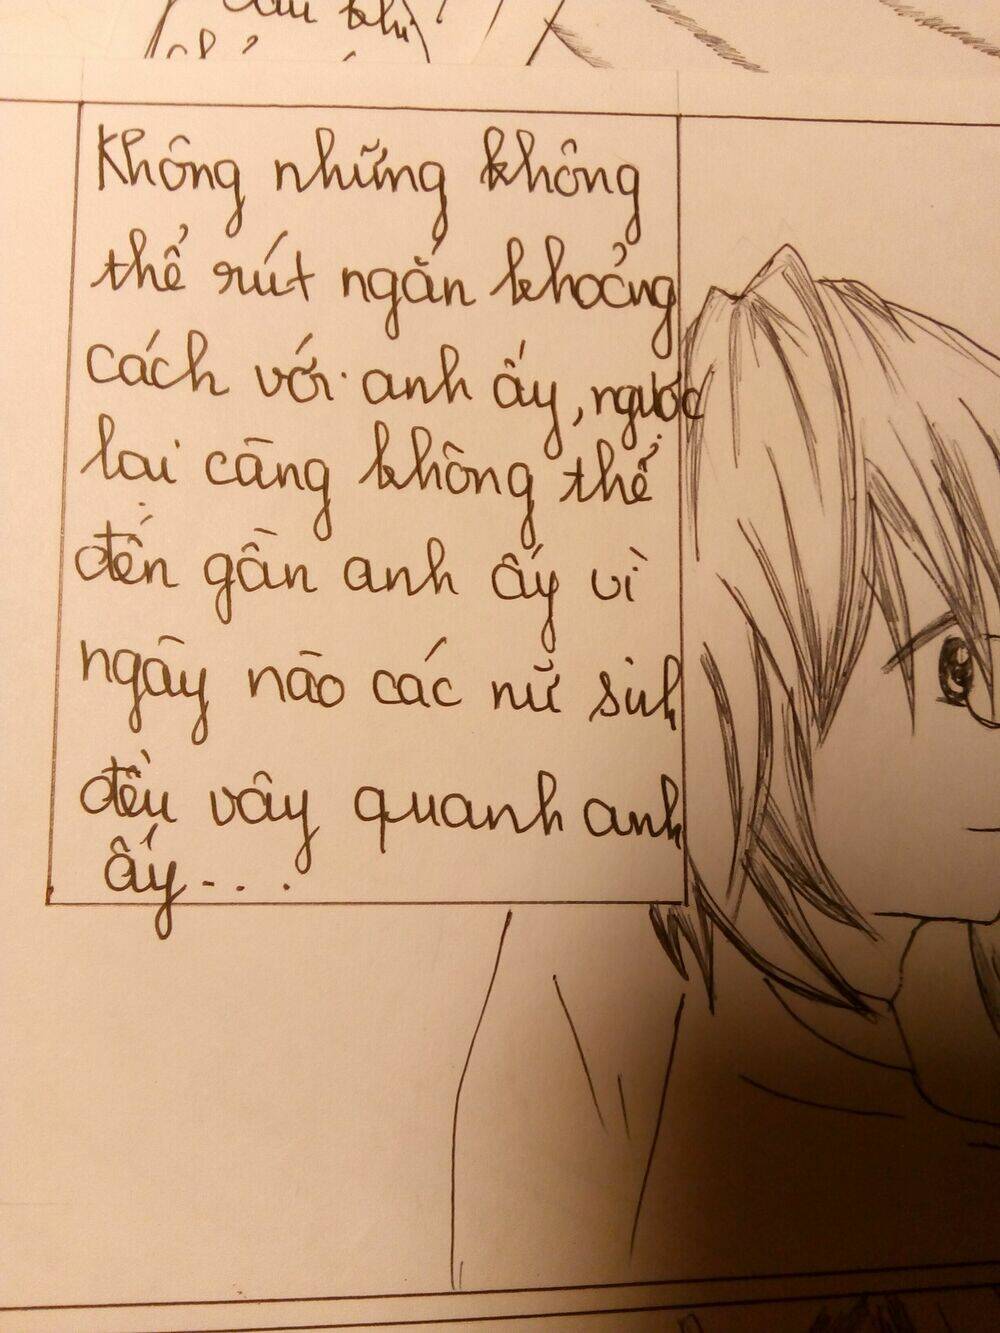 câu khi
Không những không
thể rút ngắn khoảng
cách với anh ấy, ngược
lại càng không thể
đến gần anh ấy vì
ngày nào các nữ sinh
đều vây quanh anh
ấy...